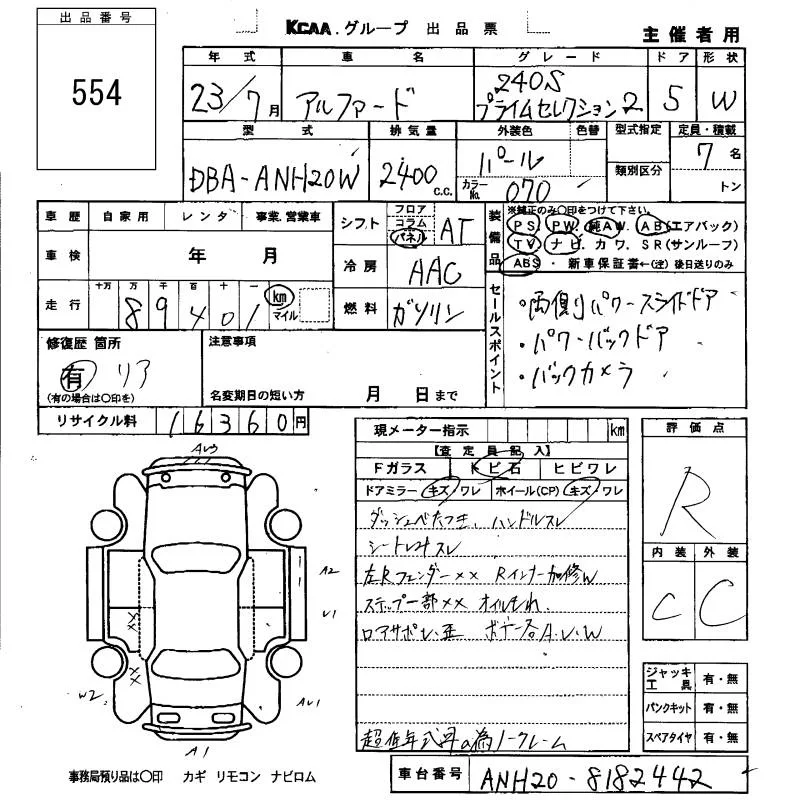 出品番号
554
KCAA.グループ 出品票
主催者用
年式 車名 グレード ドア 形状
23/7月 アルファード 240S プライムセレクション2 5 W
型式 排気量 外装色 色替 型式指定 定員・積載
DBA-ANH20W 2400 c.c. パール 7名
カラーNo. 070 類別区分 トン
車歴 自家用 レンタ 事業.営業車
シフト フロア コラム パネル AT
装備品 ※純正のみ○印をつけて下さい。
PS. PW. 純AW. AB(エアバック)
TV. ナビ. カワ. SR(サンルーフ)
ABS . 新車保証書←(注)後日送りのみ
車検 年 月
冷房 AAC
走行 十万 万 千 百 十 一
89401 km マイル
燃料 ガソリン
セールスポイント
・両側パワースライドドア
・パワーバックドア
・バックカメラ
修復歴 箇所
有 リア
(有の場合は○印を)
注意事項
名変期日の短い方 月 日まで
リサイクル料 16360円
現メーター指示 km
【査定員記入】
Fガラス トビ石 ヒビワレ
ドアミラー キズ・ワレ ホイール(CP) キズ・ワレ
ダッシュベタつき、ハンドルスレ
シートレザースレ
左Rフェンダー×× Rインナー加修W
ステップ一部×× オイルもれ
ロアサポレ歪 ボデー各A.U.W
超低年式車の為ノークレーム
評価点
R
内装 外装
C C
AU3
A2
U1
××
××
W2
AU1
A1
ジャッキ工具 有・無
パンクキット 有・無
スペアタイヤ 有・無
事務局預り品は○印 カギ リモコン ナビロム
車台番号 ANH20-8182442